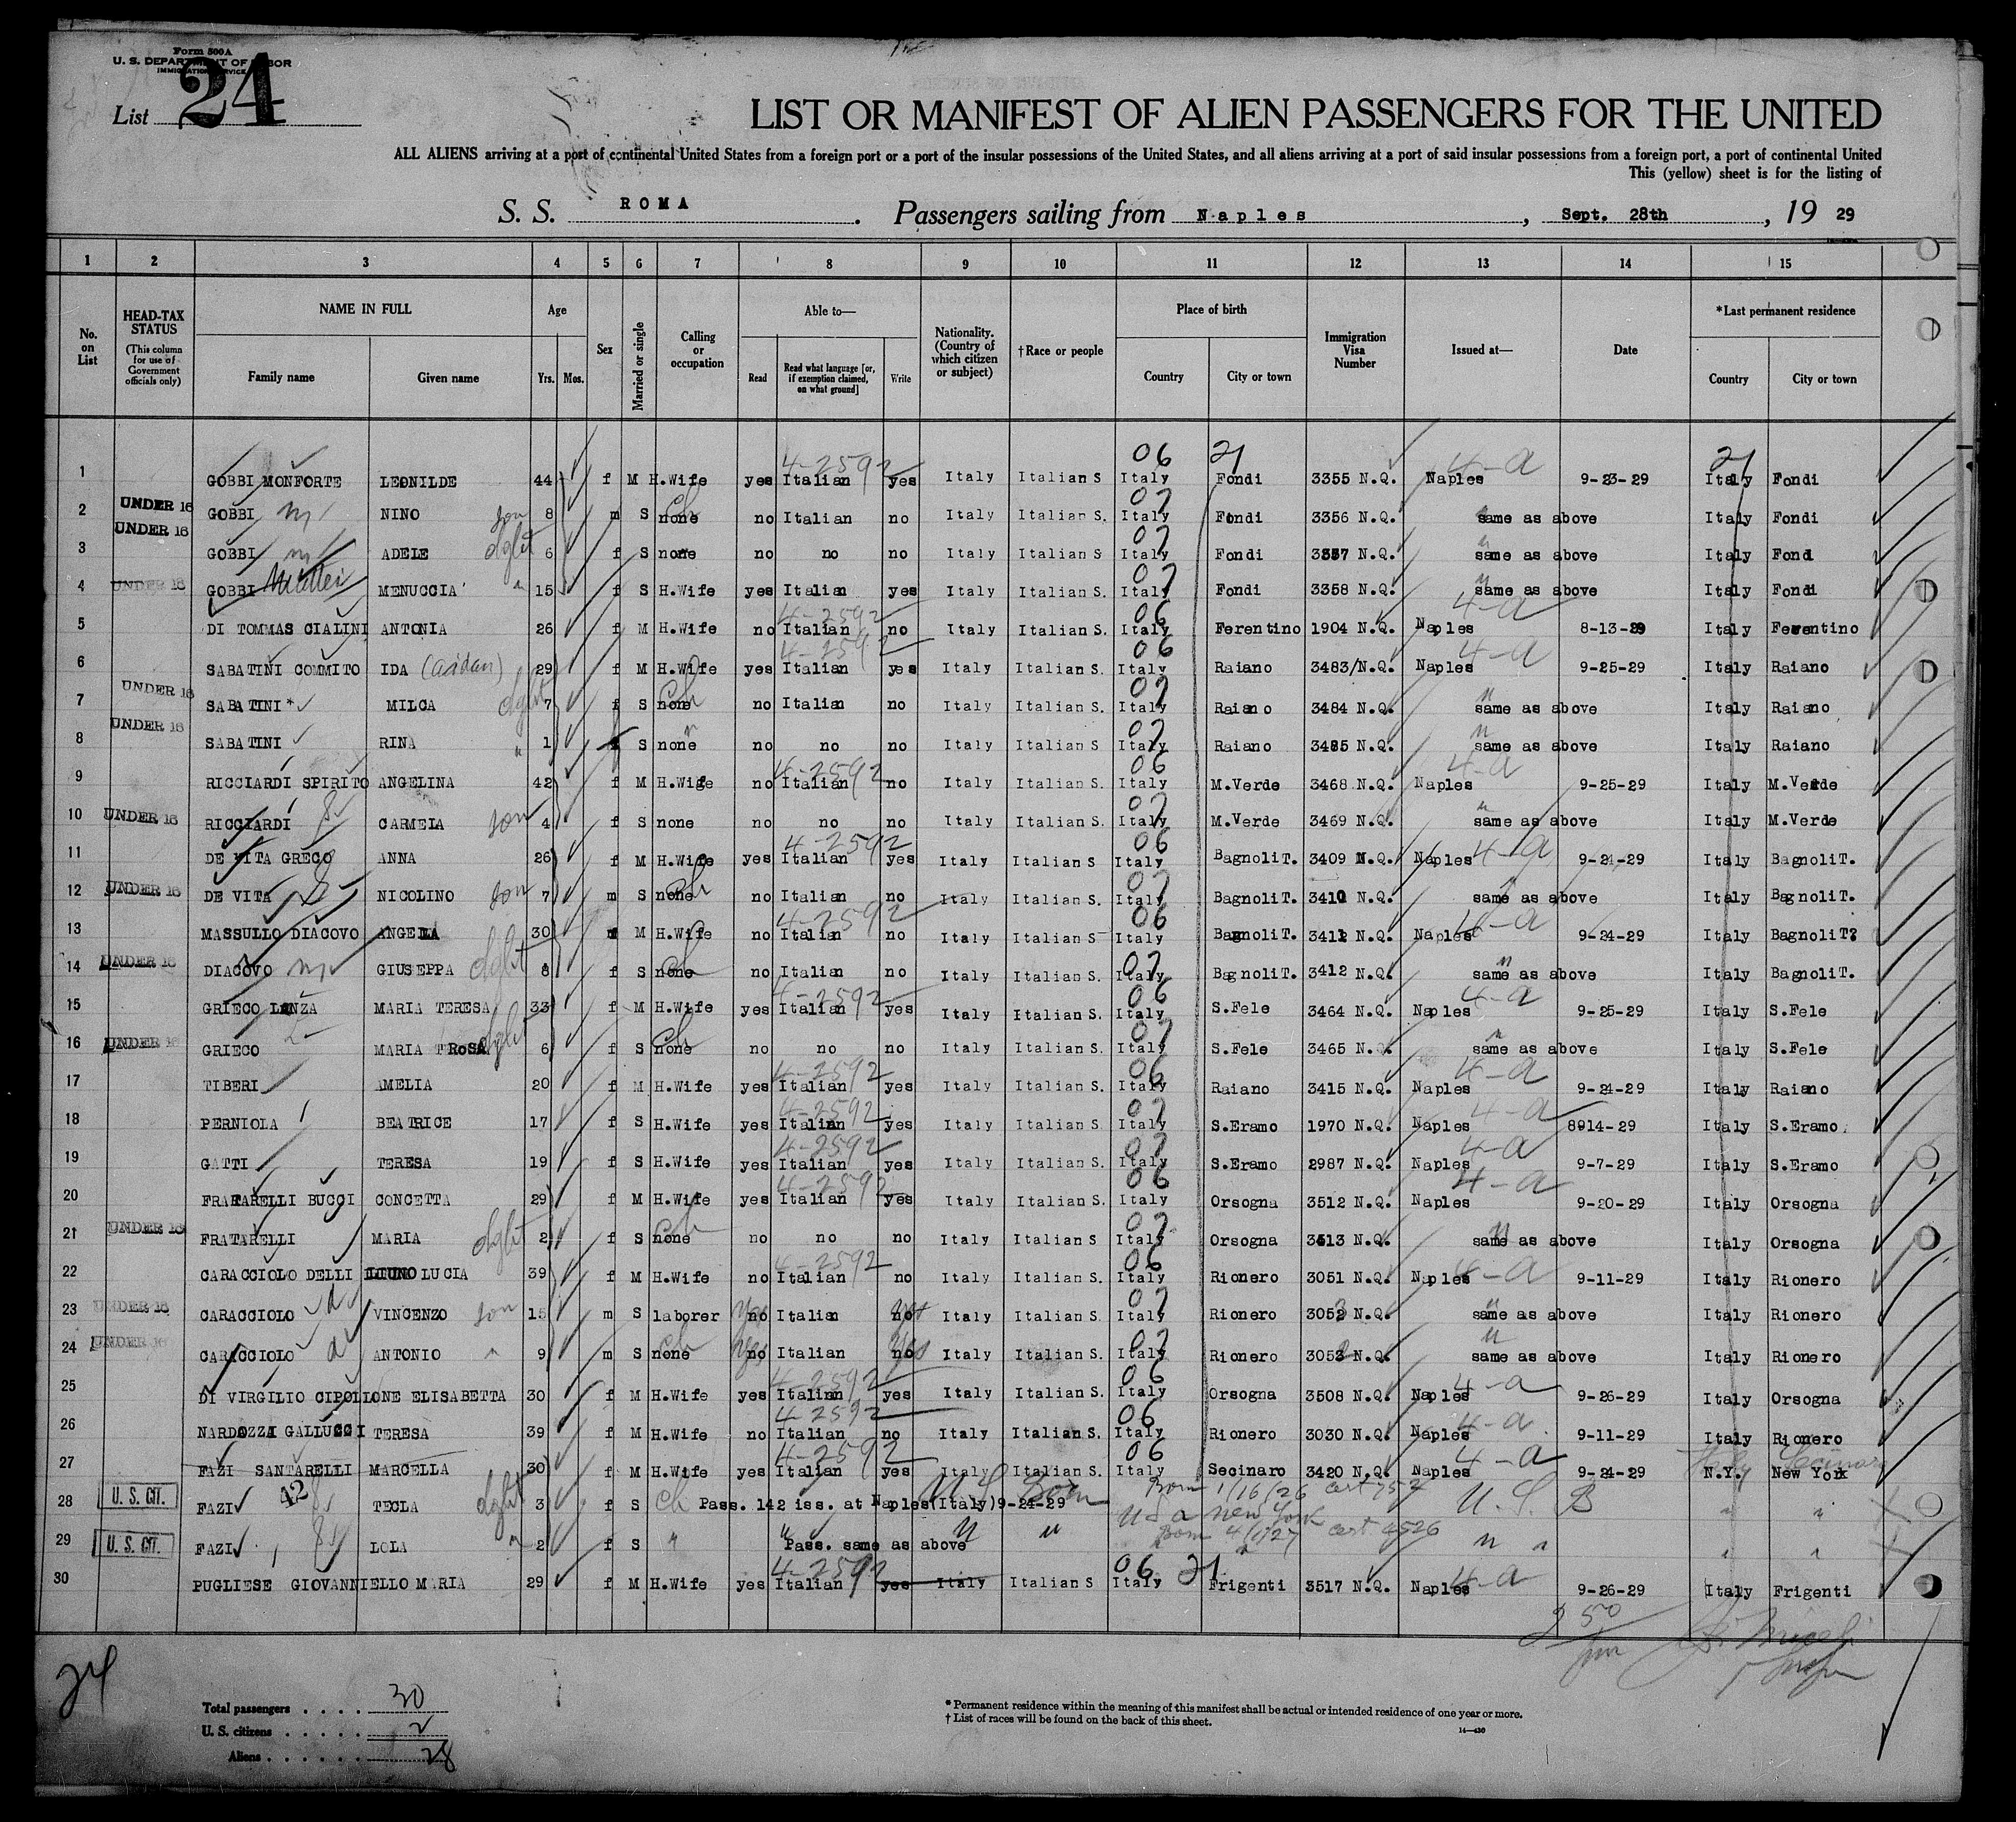 Form 500A
U. S. DEPARTMENT OF LABOR
IMMIGRATION SERVICE
List 24
LIST OR MANIFEST OF ALIEN PASSENGERS FOR THE UNITED
ALL ALIENS arriving at a port of continental United States from a foreign port or a port of the insular possessions of the United States, and all aliens arriving at a port of said insular possessions from a foreign port, a port of continental United
This (yellow) sheet is for the listing of
S. S. ROMA. Passengers sailing from Naples, Sept. 28th, 19 29
1 2 3 4 5 6 7 8 9 10 11 12 13 14 15
No. on List
HEAD-TAX STATUS (This column for use of Government officials only)
NAME IN FULL Family name Given name
Age Yrs. Mos.
Sex
Married or single
Calling or occupation
Able to— Read Read what language [or, if exemption claimed, on what ground] Write
Nationality. (Country of which citizen or subject)
†Race or people
Place of birth Country City or town
Immigration Visa Number
Issued at—
Date
*Last permanent residence Country City or town
1 GOBBI MONFORTE LEONILDE 44 f M H.Wife yes 4-2592 Italian yes Italy Italian S 06 Italy 21 Fondi 3355 N.Q. Naples 4-a 9-23-29 21 Italy Fondi
2 UNDER 16 GOBBI m NINO son 8 m S none ch no Italian no Italy Italian S. 07 Italy Fondi 3356 N.Q. same as above Italy Fondi
3 UNDER 16 GOBBI m ADELE dght 6 f S none no no no Italy Italian S 07 Italy Fondi 3357 N.Q. same as above Italy Fond
4 UNDER 16 GOBBI MENUCCIA " 15 f S H.Wife yes Italian yes Italy Italian S. 07 Italy Fondi 3358 N.Q. same as above Italy Fondi
5 DI TOMMAS CIALINI ANTONIA 26 f M H.Wife no 4-2592 Italian no Italy Italian S. 06 Italy Ferentino 1904 N.Q. Naples 4-a 8-13-29 Italy Ferentino
6 SABATINI COMMITO IDA 29 f M H.Wife yes 4-2592 Italian yes Italy Italian S. 06 Italy Raiano 3483/N.Q. Naples 4-a 9-25-29 Italy Raiano
7 UNDER 16 SABATINI* MILCA dght 7 f S none ch no Italian no Italy Italian S. 07 Italy Raiano 3484 N.Q. same as above Italy Raiano
8 UNDER 16 SABATINI RINA " 1 f S none " no no no Italy Italian S 07 Italy Raiano 3485 N.Q. same as above Italy Raiano
9 RICCIARDI SPIRITO ANGELINA 42 f M H.Wige no 4-2592 Italian no Italy Italian S. 06 Italy M.Verde 3468 N.Q. Naples 4-a 9-25-29 Italy M.Verde
10 UNDER 16 RICCIARDI CARMELA son 4 f S none no no no Italy Italian S. 07 Italy M.Verde 3469 N.Q. same as above Italy M.Verde
11 DE VITA GRECO ANNA 26 f M H.Wife yes 4-2592 Italian yes Italy Italian S 06 Italy BagnoliT. 3409 N.Q. Naples 4-a 9-24-29 Italy BagnoliT.
12 UNDER 16 DE VITA NICOLINO son 7 m S none ch no Italian no Italy Italian S. 07 Italy BagnoliT. 3410 N.Q. same as above Italy BagnoliT.
13 MASSULLO DIACOVO ANGELA 30 M H.Wife no 4-2592 Italian no Italy Italian S 06 Italy BagnoliT. 3411 N.Q. Naples 4-a 9-24-29 Italy BagnoliT?
14 UNDER 16 DIACOVO m GIUSEPPA dght 8 f S none ch no Italian no Italy Italian S. 07 Italy BagnoliT. 3412 N.Q. same as above Italy BagnoliT.
15 GRIECO LANZA MARIA TERESA 33 f M H.Wife yes 4-2592 Italian yes Italy Italian S. 06 Italy S.Fele 3464 N.Q. Naples 4-a 9-25-29 Italy S.Fele
16 UNDER 16 GRIECO L MARIA ROSA dght 6 f S none ch no no no Italy Italian S. 07 Italy S.Fele 3465 N. same as above Italy S.Fele
17 TIBERI AMELIA 20 f M H.Wife yes 4-2592 Italian yes Italy Italian S. 06 Italy Raiano 3415 N.Q. Naples 4-a 9-24-29 Italy Raiano
18 PERNIOLA BEATRICE 17 f S H.Wife yes 4-2592 Italian yes Italy Italian S. 07 Italy S.Eramo 1970 N.Q. Naples 4-a 8914-29 Italy S.Eramo
19 GATTI TERESA 19 f S H.Wife yes 4-2592 Italian yes Italy Italian S. 07 Italy S.Eramo 2987 N.Q. Naples 4-a 9-7-29 Italy S.Eramo
20 FRATARELLI BUCCI CONCETTA 29 f M H.Wife yes 4-2592 Italian yes Italy Italian S. 06 Italy Orsogna 3512 N.Q. Naples 4-a 9-20-29 Italy Orsogna
21 UNDER 16 FRATARELLI MARIA dght 2 f S none ch no no no Italy Italian S 07 Italy Orsogna 3513 N.Q. same as above Italy Orsogna
22 CARACCIOLO DELLI LUCIA 39 f M H.Wife no 4-2592 Italian no Italy Italian S. 06 Italy Rionero 3051 N.Q. Naples 4-a 9-11-29 Italy Rionero
23 UNDER 16 CARACCIOLO d VINCENZO son 15 m S laborer yes no Italian no Italy Italian S. 07 Italy Rionero 3052 N.Q. same as above Italy Rionero
24 UNDER 16 CARACCIOLO d ANTONIO " 9 m S none ch yes no Italian no yes Italy Italian S. 07 Italy Rionero 3053 N.Q. same as above Italy Rionero
25 DI VIRGILIO CIPOLLONE ELISABETTA 30 f M H.Wife yes 4-2592 Italian yes Italy Italian S. 06 Italy Orsogna 3508 N.Q. Naples 4-a 9-26-29 Italy Orsogna
26 NARDOZZI GALLUCCI TERESA 39 f M H.Wife no 4-2592 Italian no Italy Italian S. 06 Italy Rionero 3030 N.Q. Naples 4-a 9-11-29 Italy Rionero
27 FAZI SANTARELLI MARCELLA 30 f M H.Wife yes 4-2592 Italian yes Italy Italian S. 06 Italy Secinaro 3420 N.Q. Naples 4-a 9-24-29 N.Y. New York
28 U. S. CIT. FAZI 42 TECLA dght 3 f S ch Pass. 142 iss. at Naples(Italy)9-24-29 U S Born Born 1/16/26 cert U S B
U S a New York
29 U. S. CIT. FAZI LOLA " 2 f S " Pass. same as above " " Born 4/1/27 cert 4526 " "
30 PUGLIESE GIOVANNIELLO MARIA 29 f M H.Wife yes 4-2592 Italian yes Italy Italian S 06 Italy 21 Frigenti 3517 N.Q. Naples 4-a 9-26-29 Italy Frigenti
2 50
24
Total passengers . . . . 30
U. S. citizens . . . . . 2
Aliens . . . . . . 28
* Permanent residence within the meaning of this manifest shall be actual or intended residence of one year or more.
† List of races will be found on the back of this sheet.
14—430